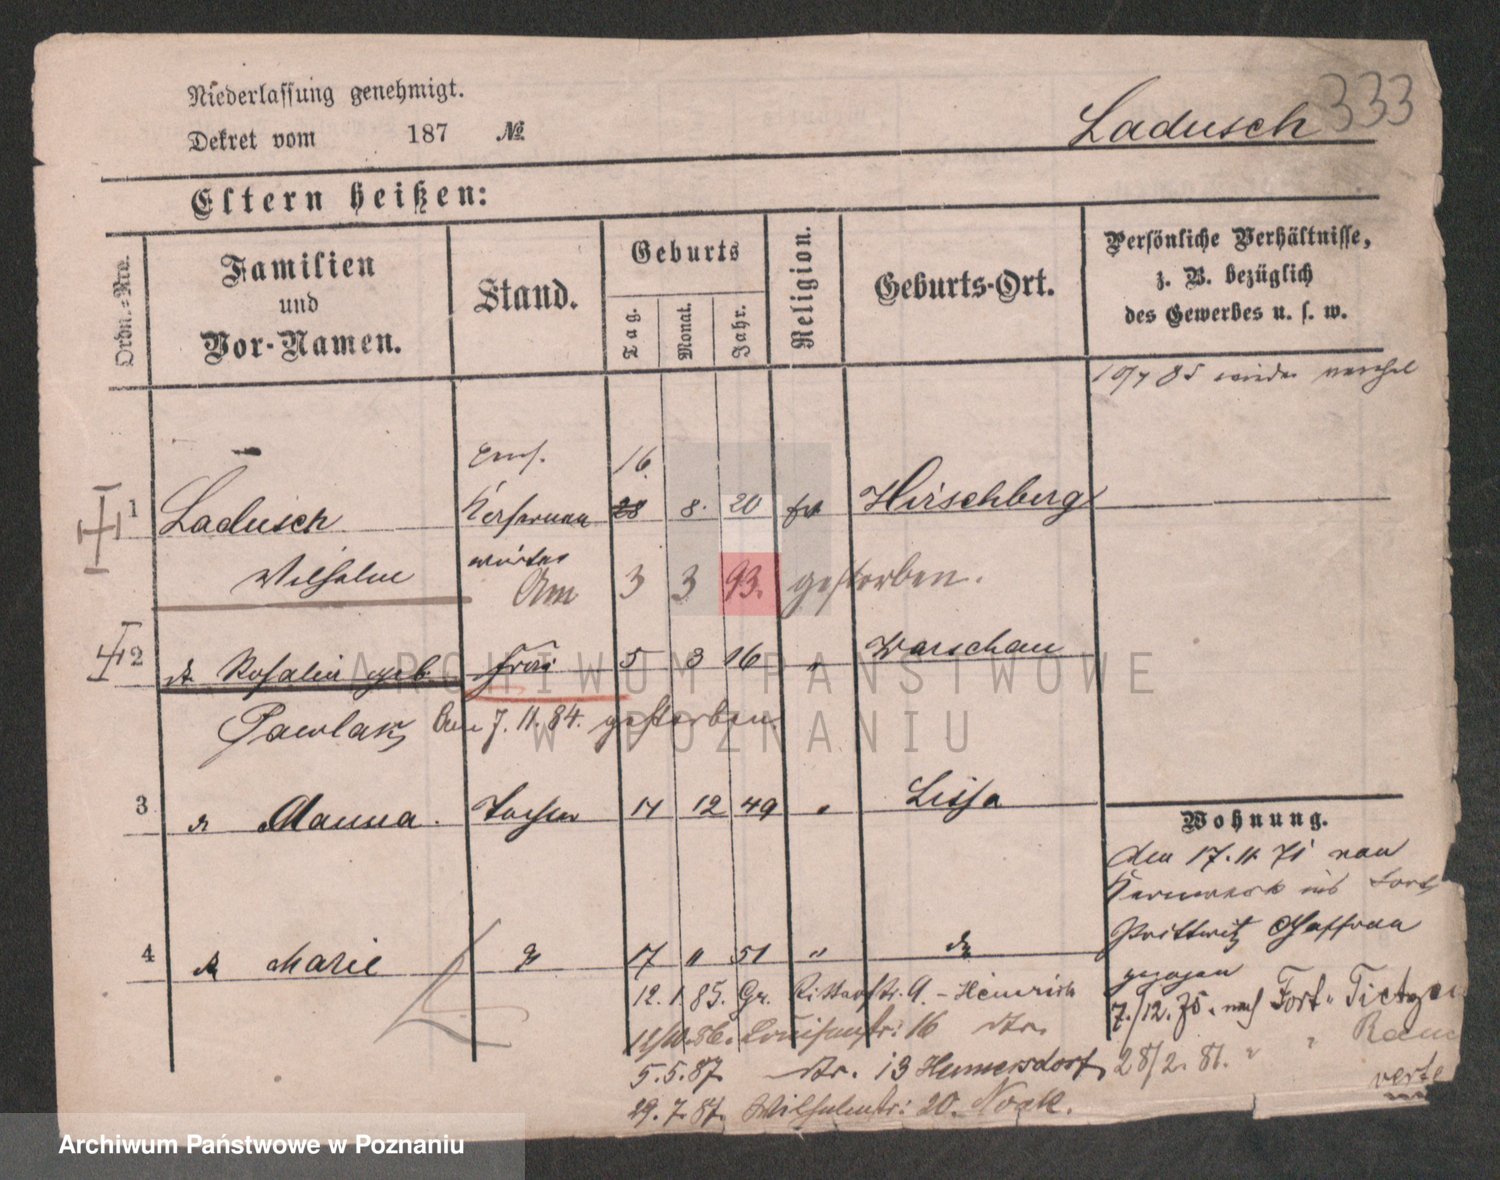 Niederlassung genehmigt.
Dekret vom 187 №
Ladusch 333
Eltern heißen:
Ordn.-Nro.
Familien
und
Vor-Namen.
Stand.
Geburts
Tag.
Monat.
Jahr.
Religion.
Geburts-Ort.
Persönliche Verhältnisse,
z. B. bezüglich
des Gewerbes u. s. w.
wieder
16
1 Ladusch 28 8. 20 Hirschberg
Wilhelm
Am 3 3 93. gestorben.
2 Rosalie geb. Frau 5 3 16 " Warschau
Pawlak am 7. 11. 84. gestorben.
3 Manna. Tochter 17 12 49 " Lissa
Wohnung.
den 17. 11. 71 von
Kernwerk ins Fort
Prittwitz Gaffron
gezogen
4 Marie 17 " 51 "
7./12. 75. nach Fort " Tietzen
12. 1. 85. Gr. Ritterstr. 9. - Heinrich
86. Louisenstr: 16
28/2. 81. " "
5. 5. 87. 13 Humersdorf
29. 7. 87. Wilhelmstr: 20. Noak.
verte
ARCHIWUM PAŃSTWOWE
W POZNANIU
Archiwum Państwowe w Poznaniu